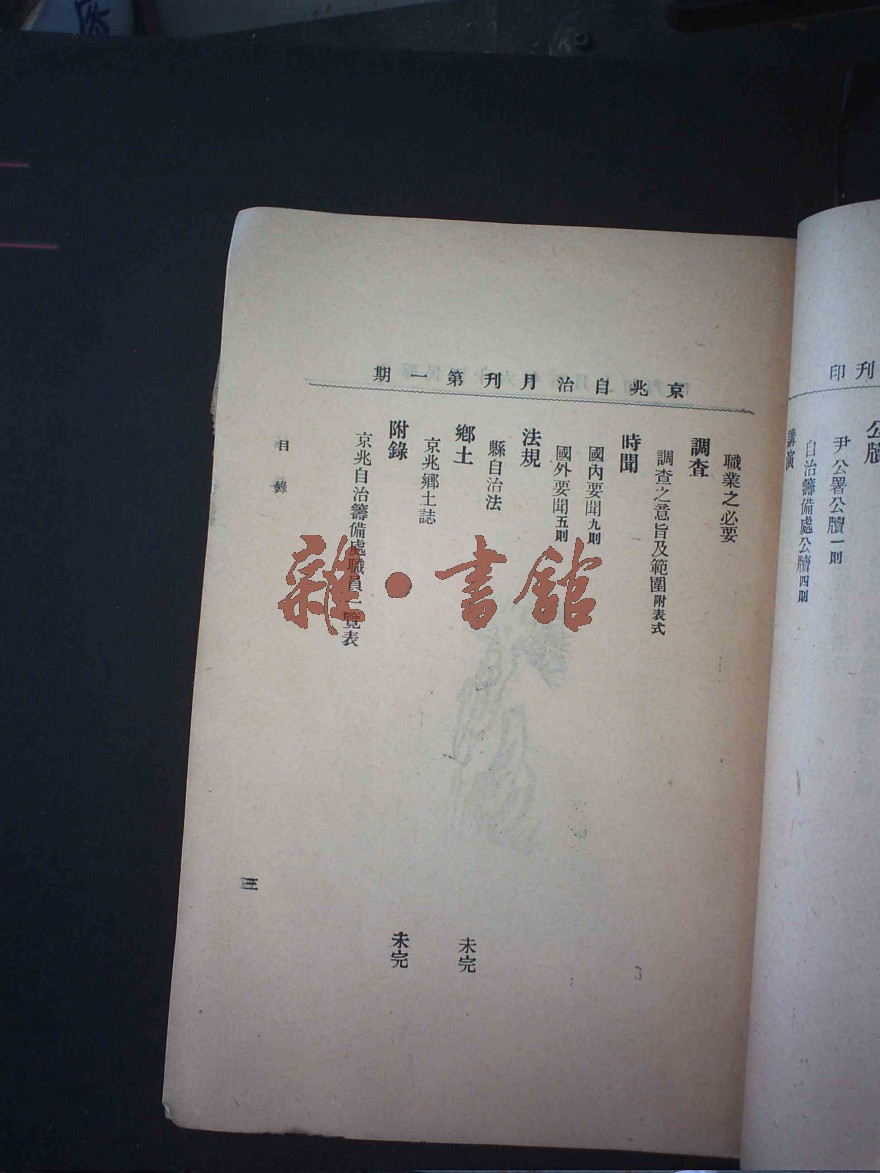 刊印
公牘
尹公署公牘一則
自治籌備處公牘四則
講演
京兆自治月刊第一期
職業之必要
調查
調查之意旨及範圍附表式
時聞
國內要聞九則
國外要聞五則
法規
縣自治法
鄉土
未完
京兆鄉土誌
附錄
未完
京兆自治籌備處職員一覽表
目錄
三
雜·書館